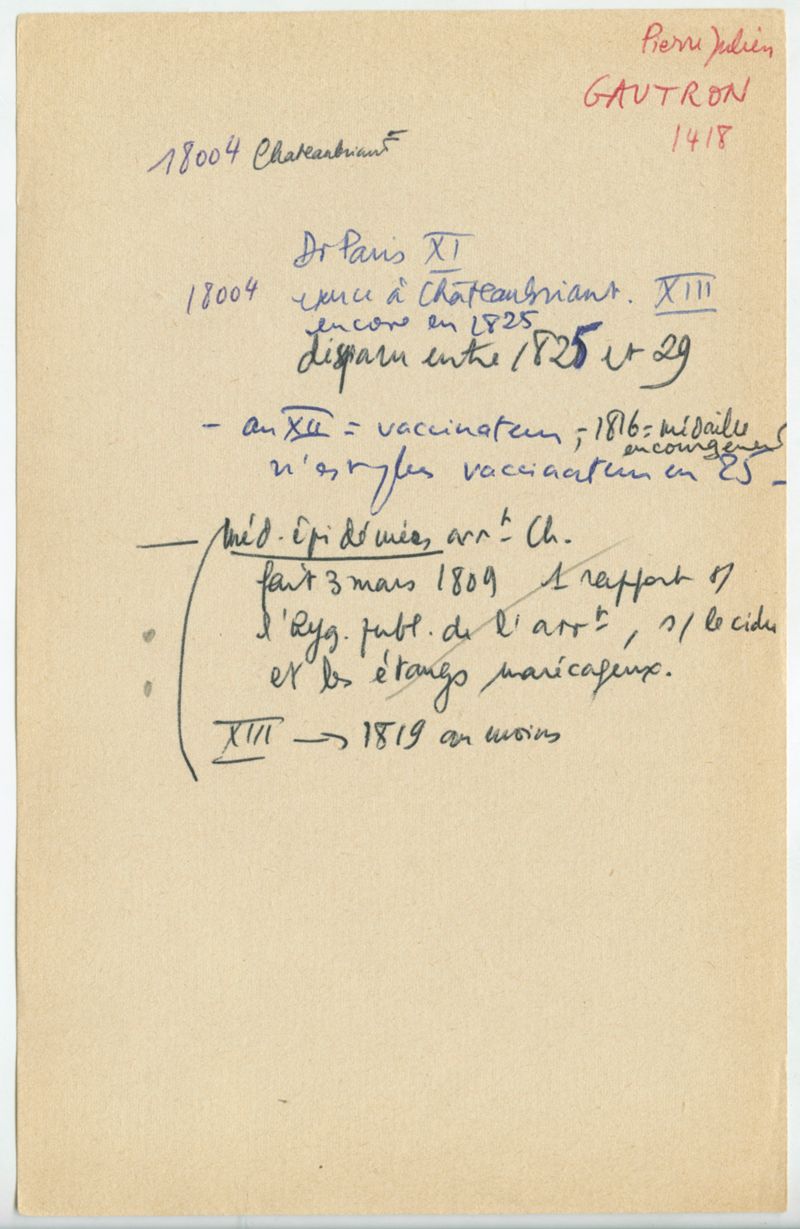 Pierre Julien
GAUTRON
1418
18004 Chateaubriant
Dr Paris XI
18004 exerce à Châteaubriant. XIII
encore en 1825
disparu entre 1825 et 29
- an XII = vaccinateur ; - 1816 = médaille
encouragement
n'est plus vaccinateur en 25 -
— Méd. épidémies arrt Ch.
fait 3 mars 1809 1 rapport s/
l'hyg. publ. de l'arrt, s/ le cidre
et les étangs marécageux.
XIII → 1819 au moins